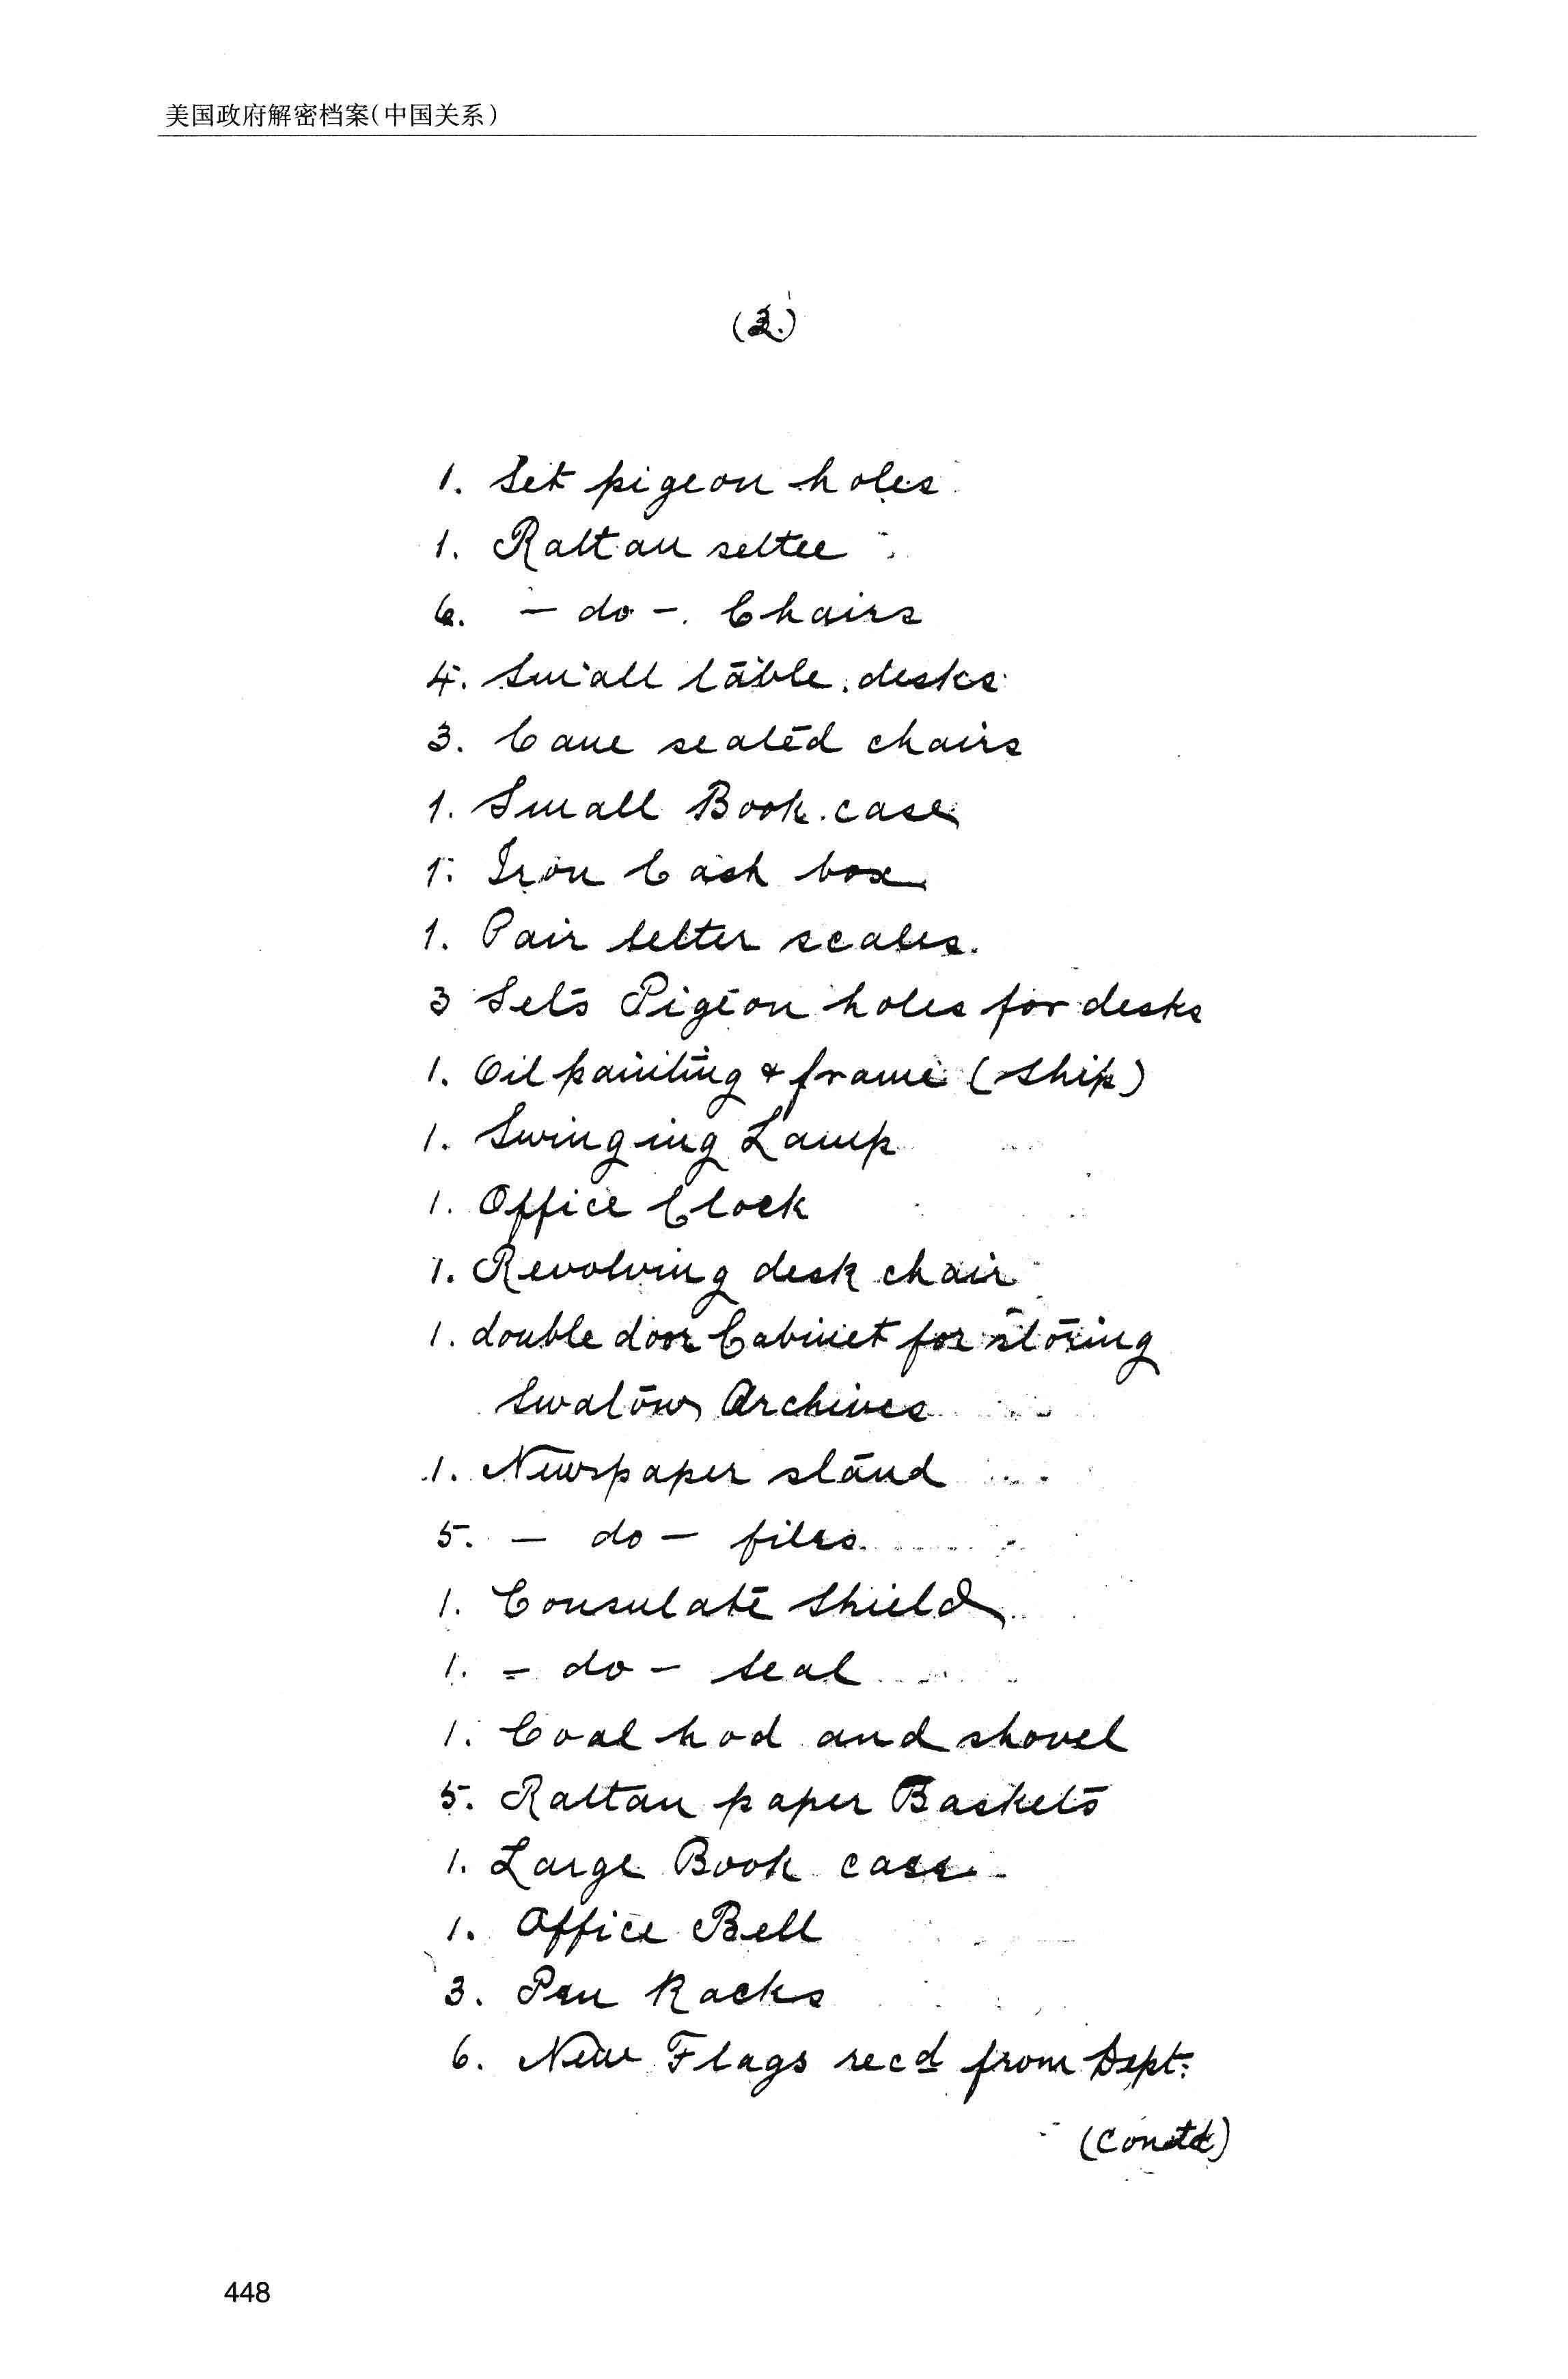 美国政府解密档案(中国关系)
(2.)
1. Set pigeon holes
1. Rattan settee
6. - do -. Chairs
4. Small table desks
3. Cane seated chairs
1. Small Book.case
1. Iron Cash box
1. Pair letter scales.
3 Sets Pigeon holes for desks
1. Oil painting & frame (Ship)
1. Swinging Lamp
1. Office Clock
1. Revolving desk chair
1. double door Cabinet for storing
Swatow Archives
1. Newspaper stand
5. - do - files
1. Consulate Shield
1. - do - Seal
1. Coal hod and shovel
5. Rattan paper Baskets
1. Large Book case
1. Office Bell
3. Pen Racks
6. New Flags recd from Dept.
(Contd)
448